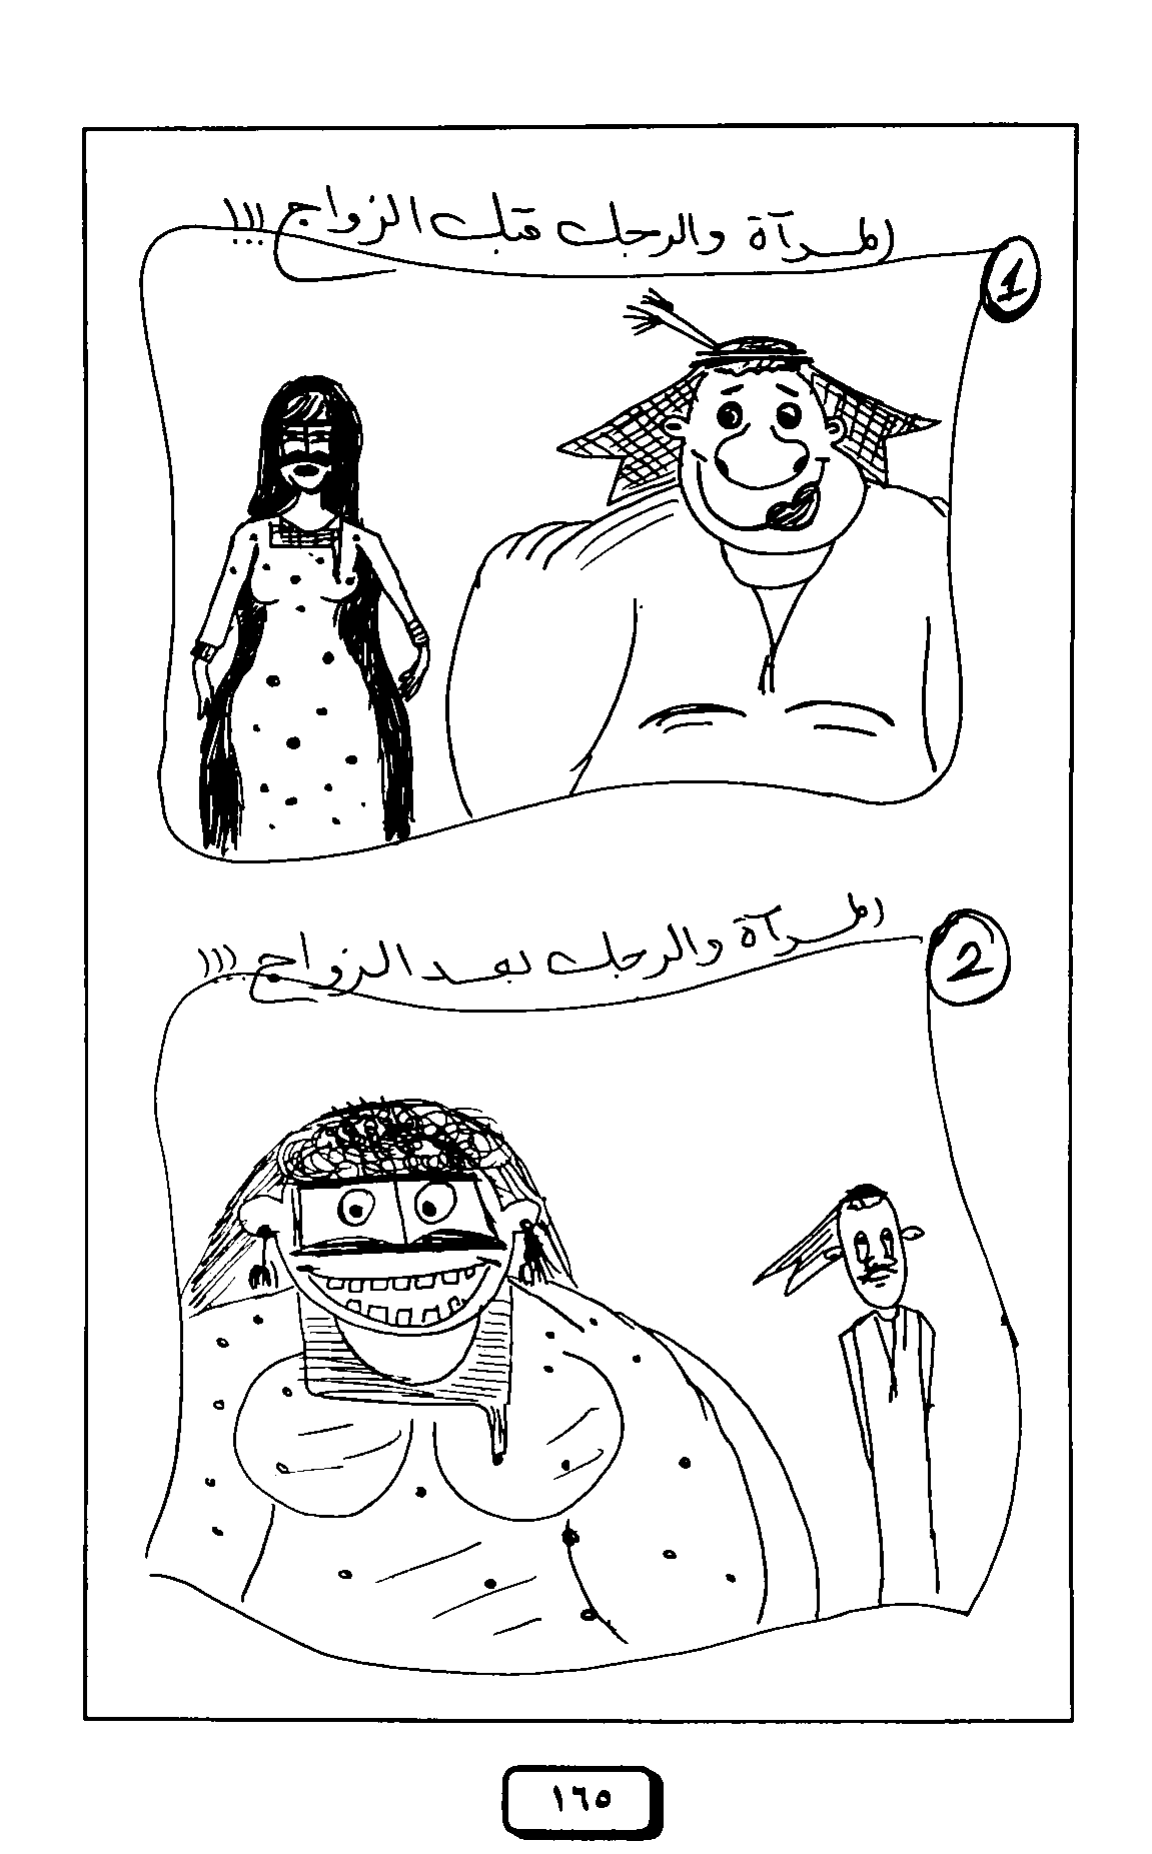 المرآة والرجل قبل الزواج !!!
1
المرآة والرجل بعد الزواج !!!
2
١٦٥